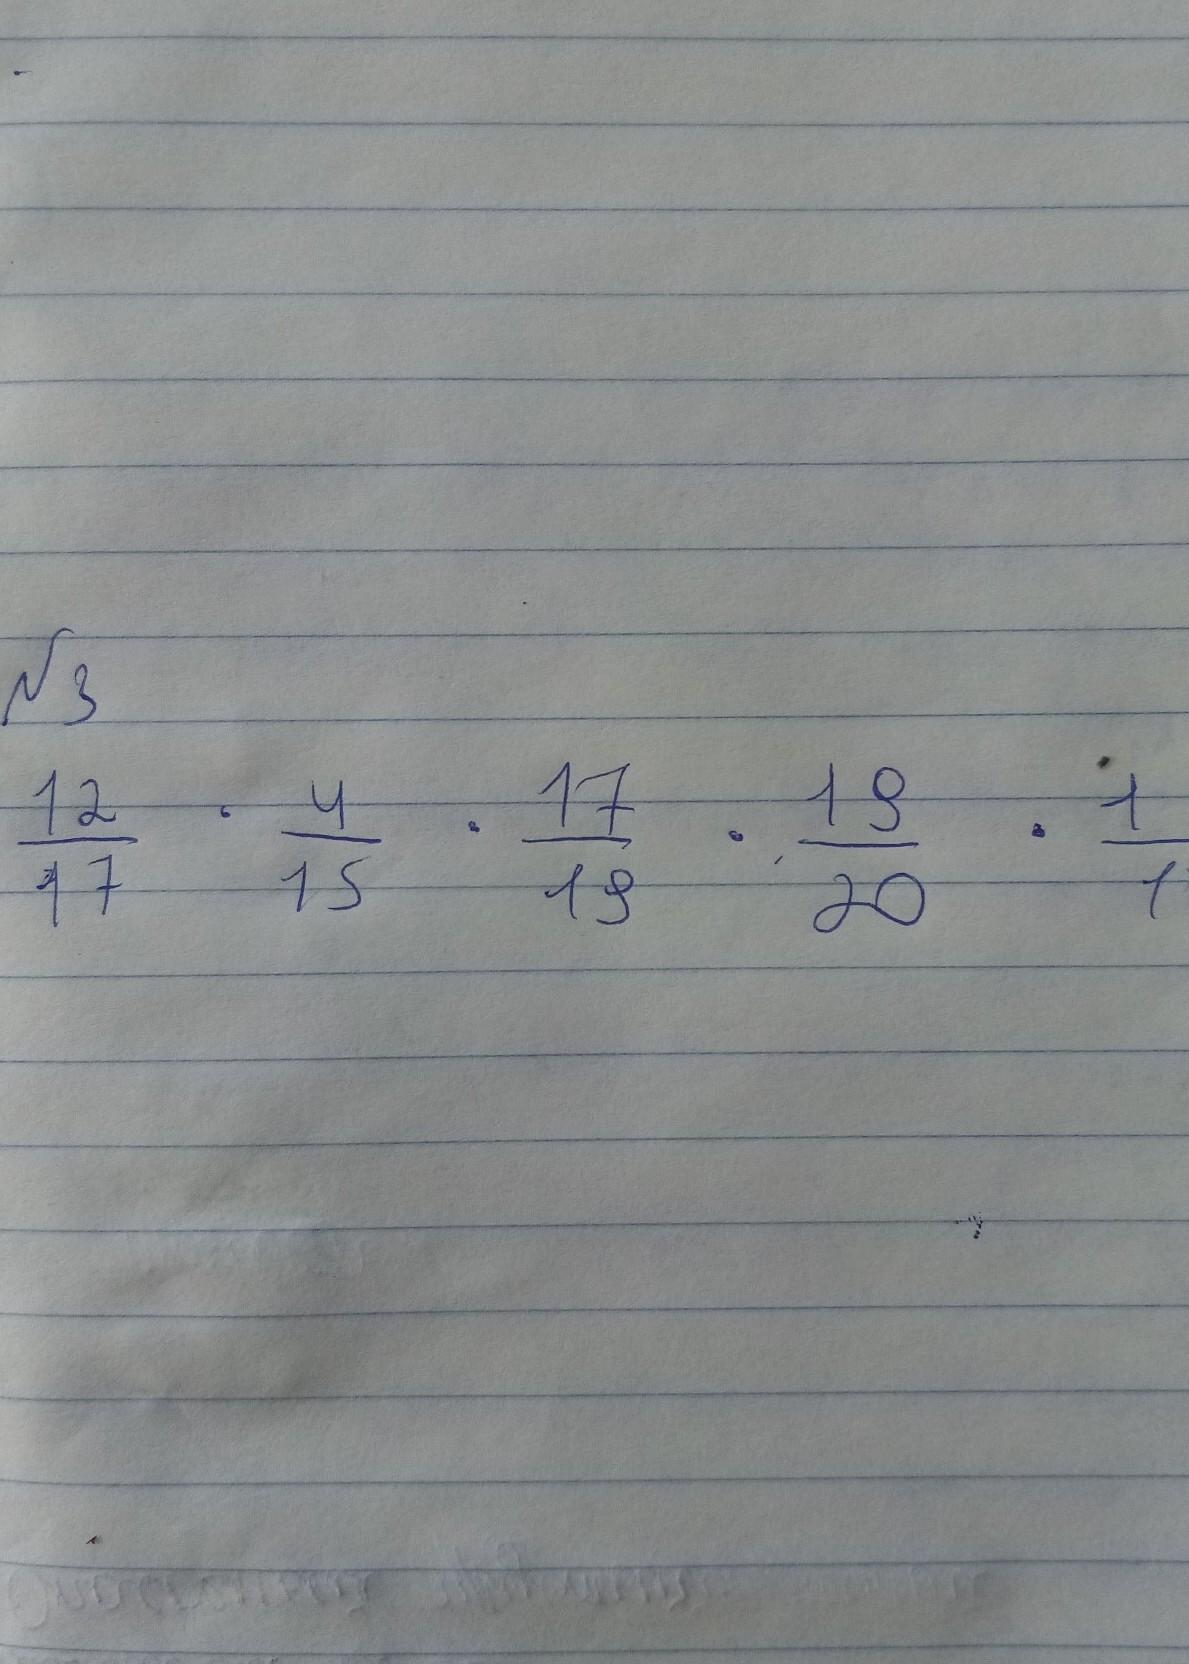 №3
12/17 · 4/15 · 17/19 · 19/20 · 1/1